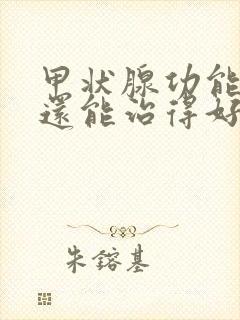 甲状腺功能
還能治得好
朱鎔基